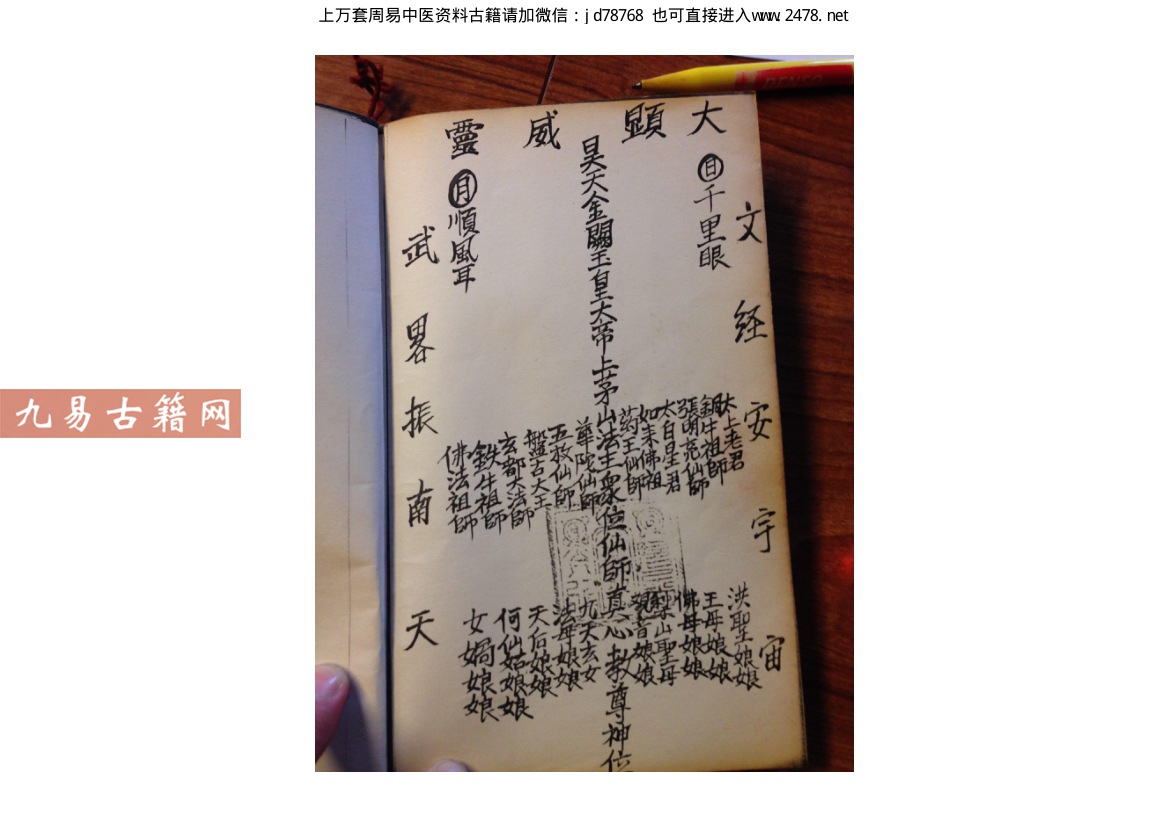 上万套周易中医资料古籍请加微信：jd78768 也可直接进入www.2478.net
九易古籍网
大顯威靈
日千里眼
月順風耳
文経安宇宙
武畧振南天
昊天金闕玉皇大帝上茅山法主衆位仙師真心教尊神位
太上老君
銅牛祖師
張明亮仙師
太白星君
如来佛祖
药王仙師
華陀仙師
五救仙師
盤古大王
玄都大法師
鉄牛祖師
佛法祖師
洪聖娘娘
王母娘娘
佛母娘娘
梨山聖母
觀音娘娘
九天玄女
法母娘娘
天后娘娘
何仙姑娘娘
女媧娘娘